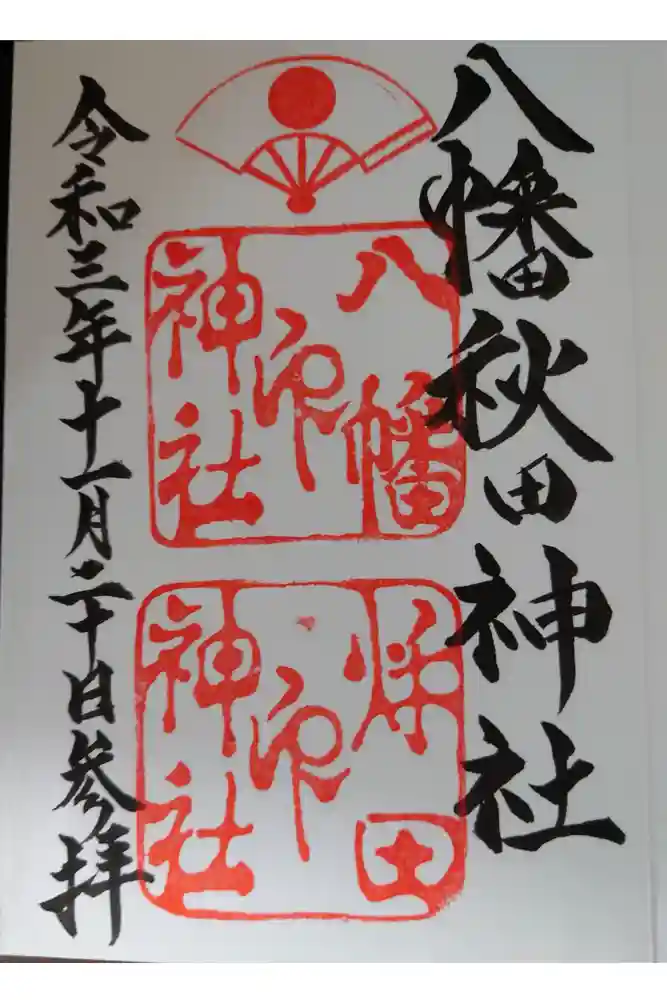 八幡秋田神社
八幡
印
神社
秌田
印
神社
令和三年十一月二十日参拝